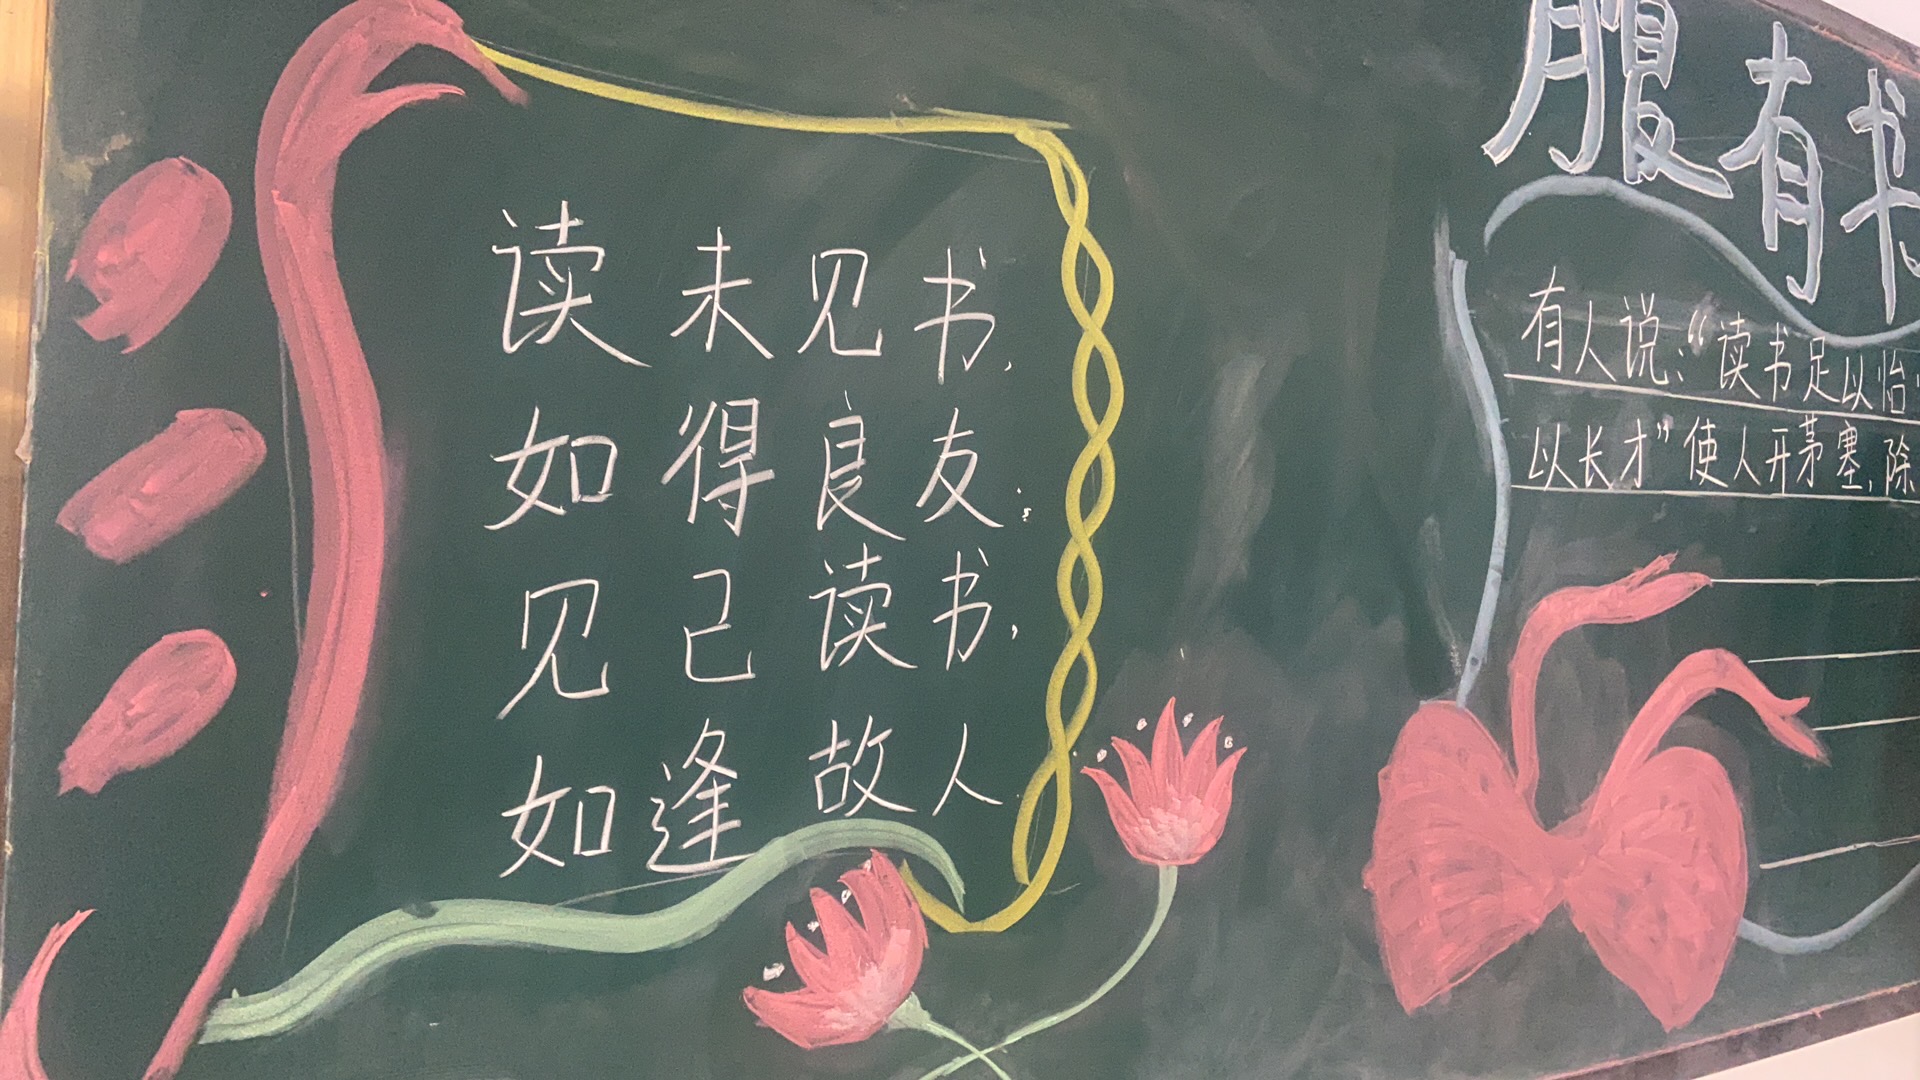 读未见书,
如得良友;
见己读书,
如逢故人
腹有书
有人说:“读书足以怡
以长才”使人开茅塞,除